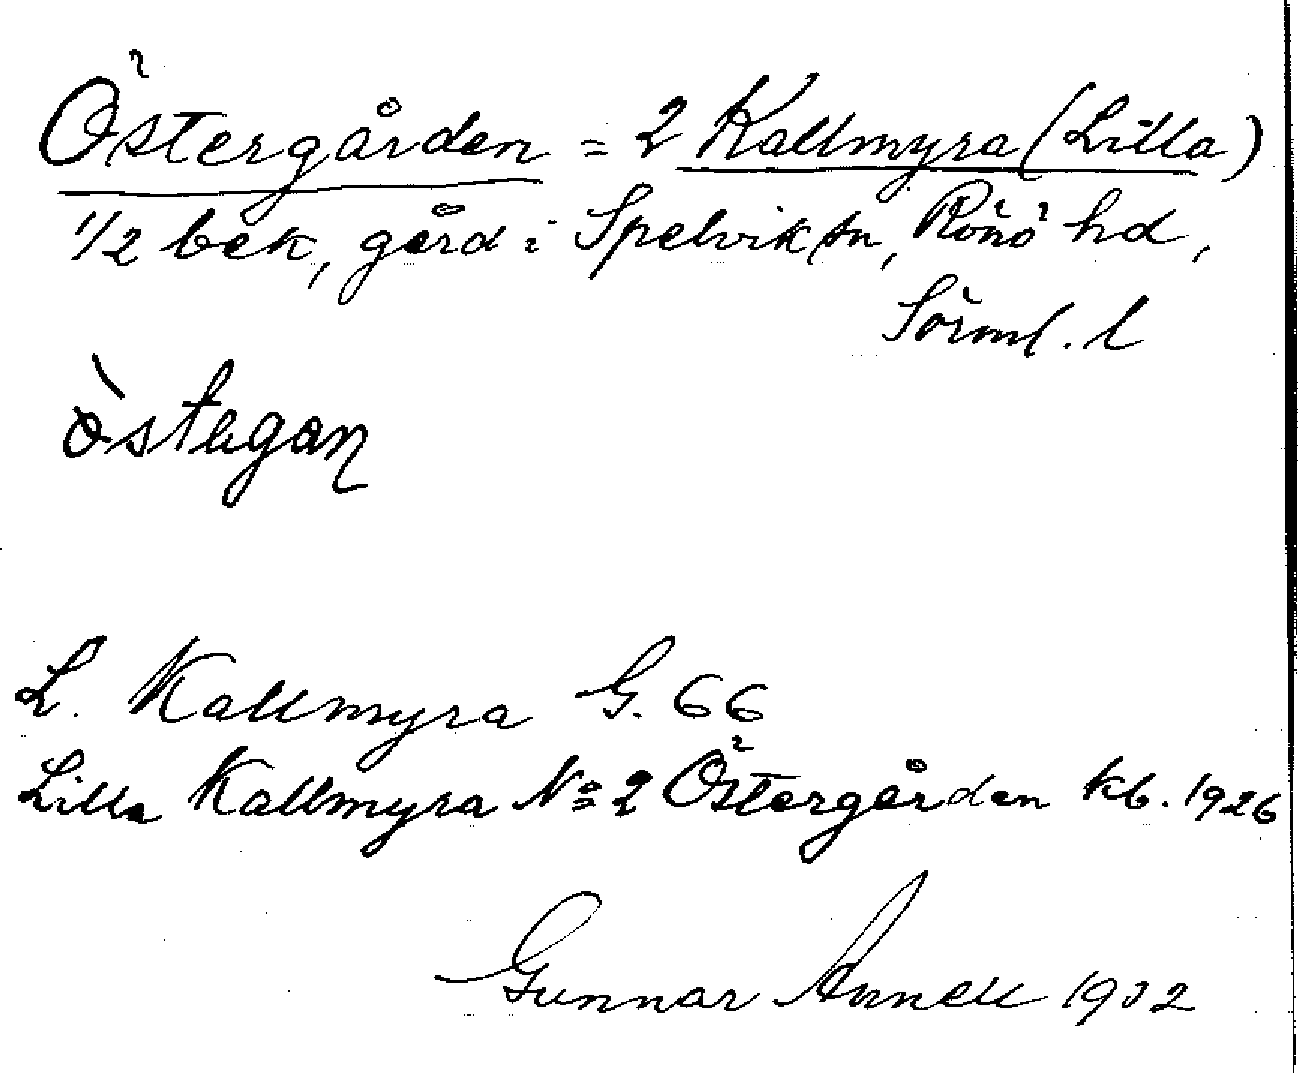 Östergården = 2 Kallmyra (Lilla)
1/2 bek, gård i Spelvik sn, Rönö hd,
Sörml. l
òstegan
L. Kallmyra G. 66
Lilla Kallmyra No 2 Östergården kb. 1926
Gunnar Annell 1932